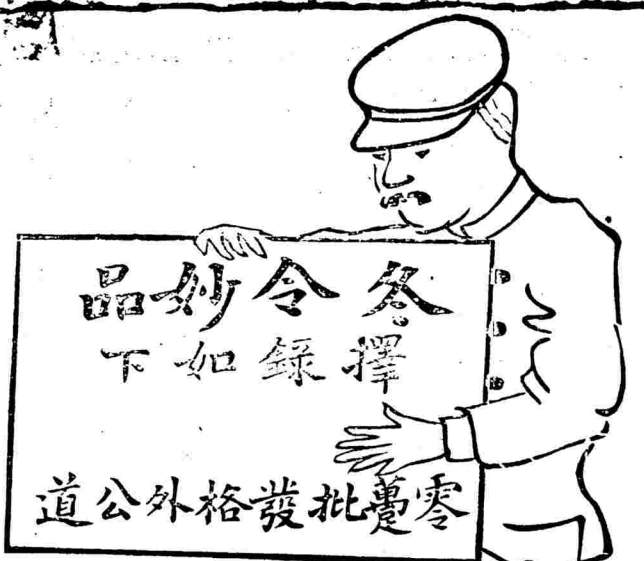 冬令妙品
擇錄如下
零躉批發格外公道